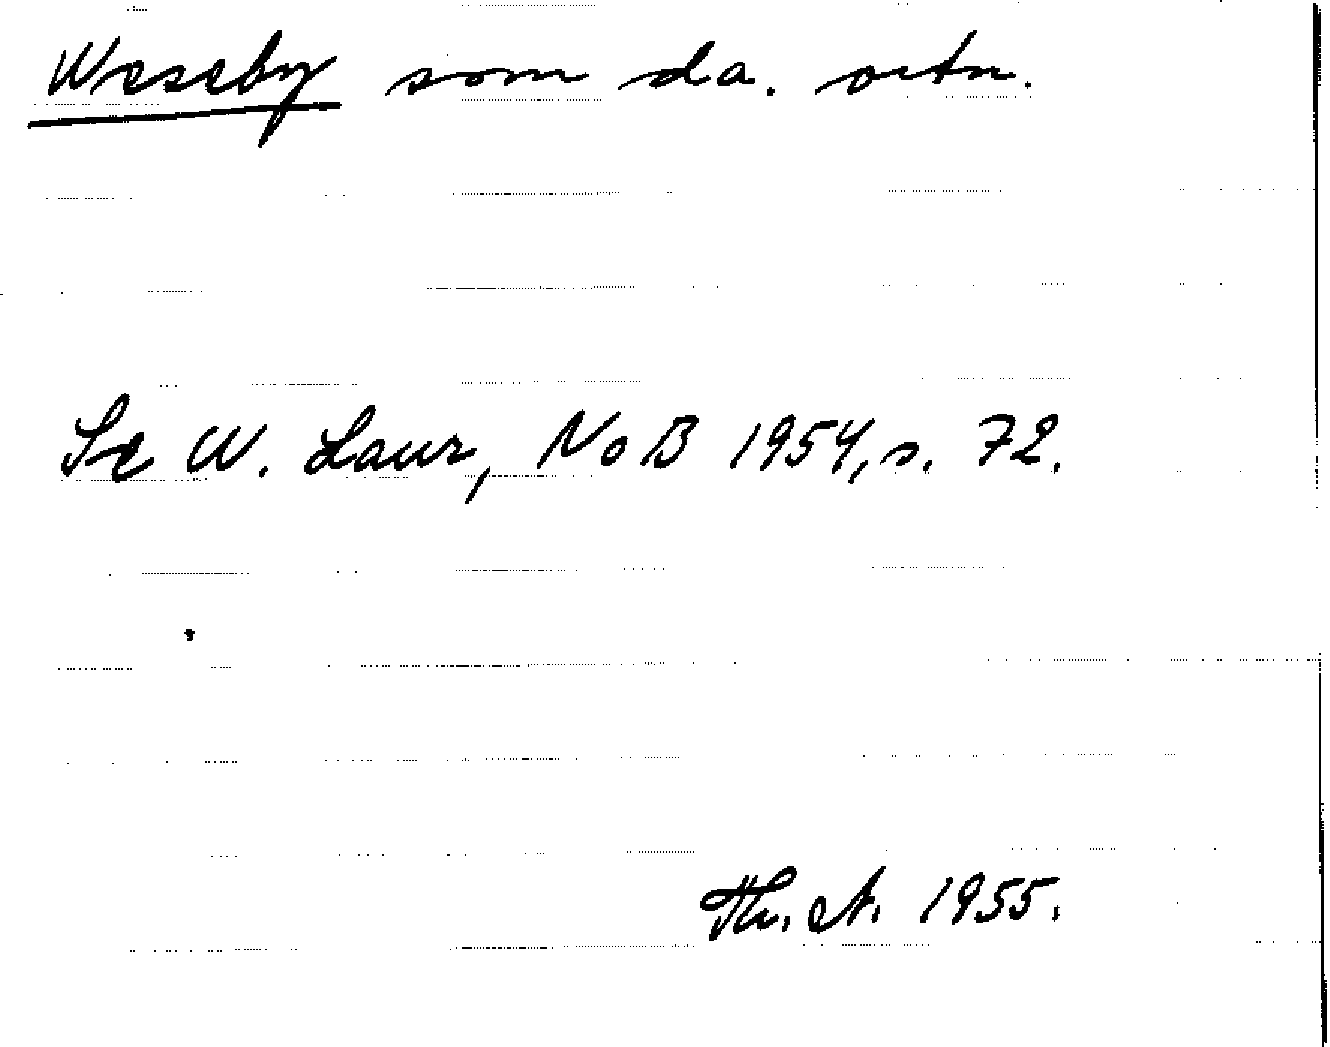 Weseby som da. ortn.
Se W. Laur, NoB 1954, s. 72.
Th. A. 1955.